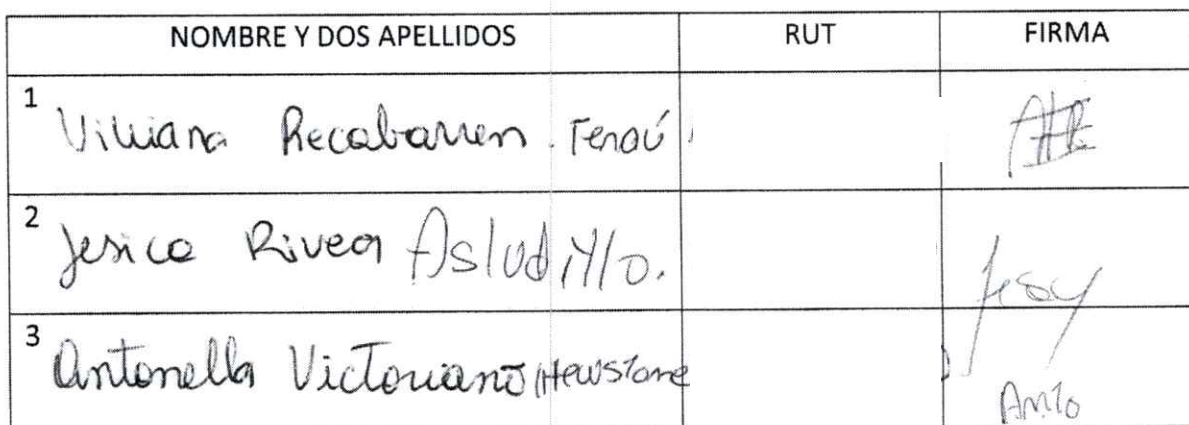 NOMBRE Y DOS APELLIDOS RUT FIRMA
1 Viviana Recabarren Feraú
2 Jesica Rivera Asludillo. Jesy
3 Antonella Victoriano Hewstone Anto